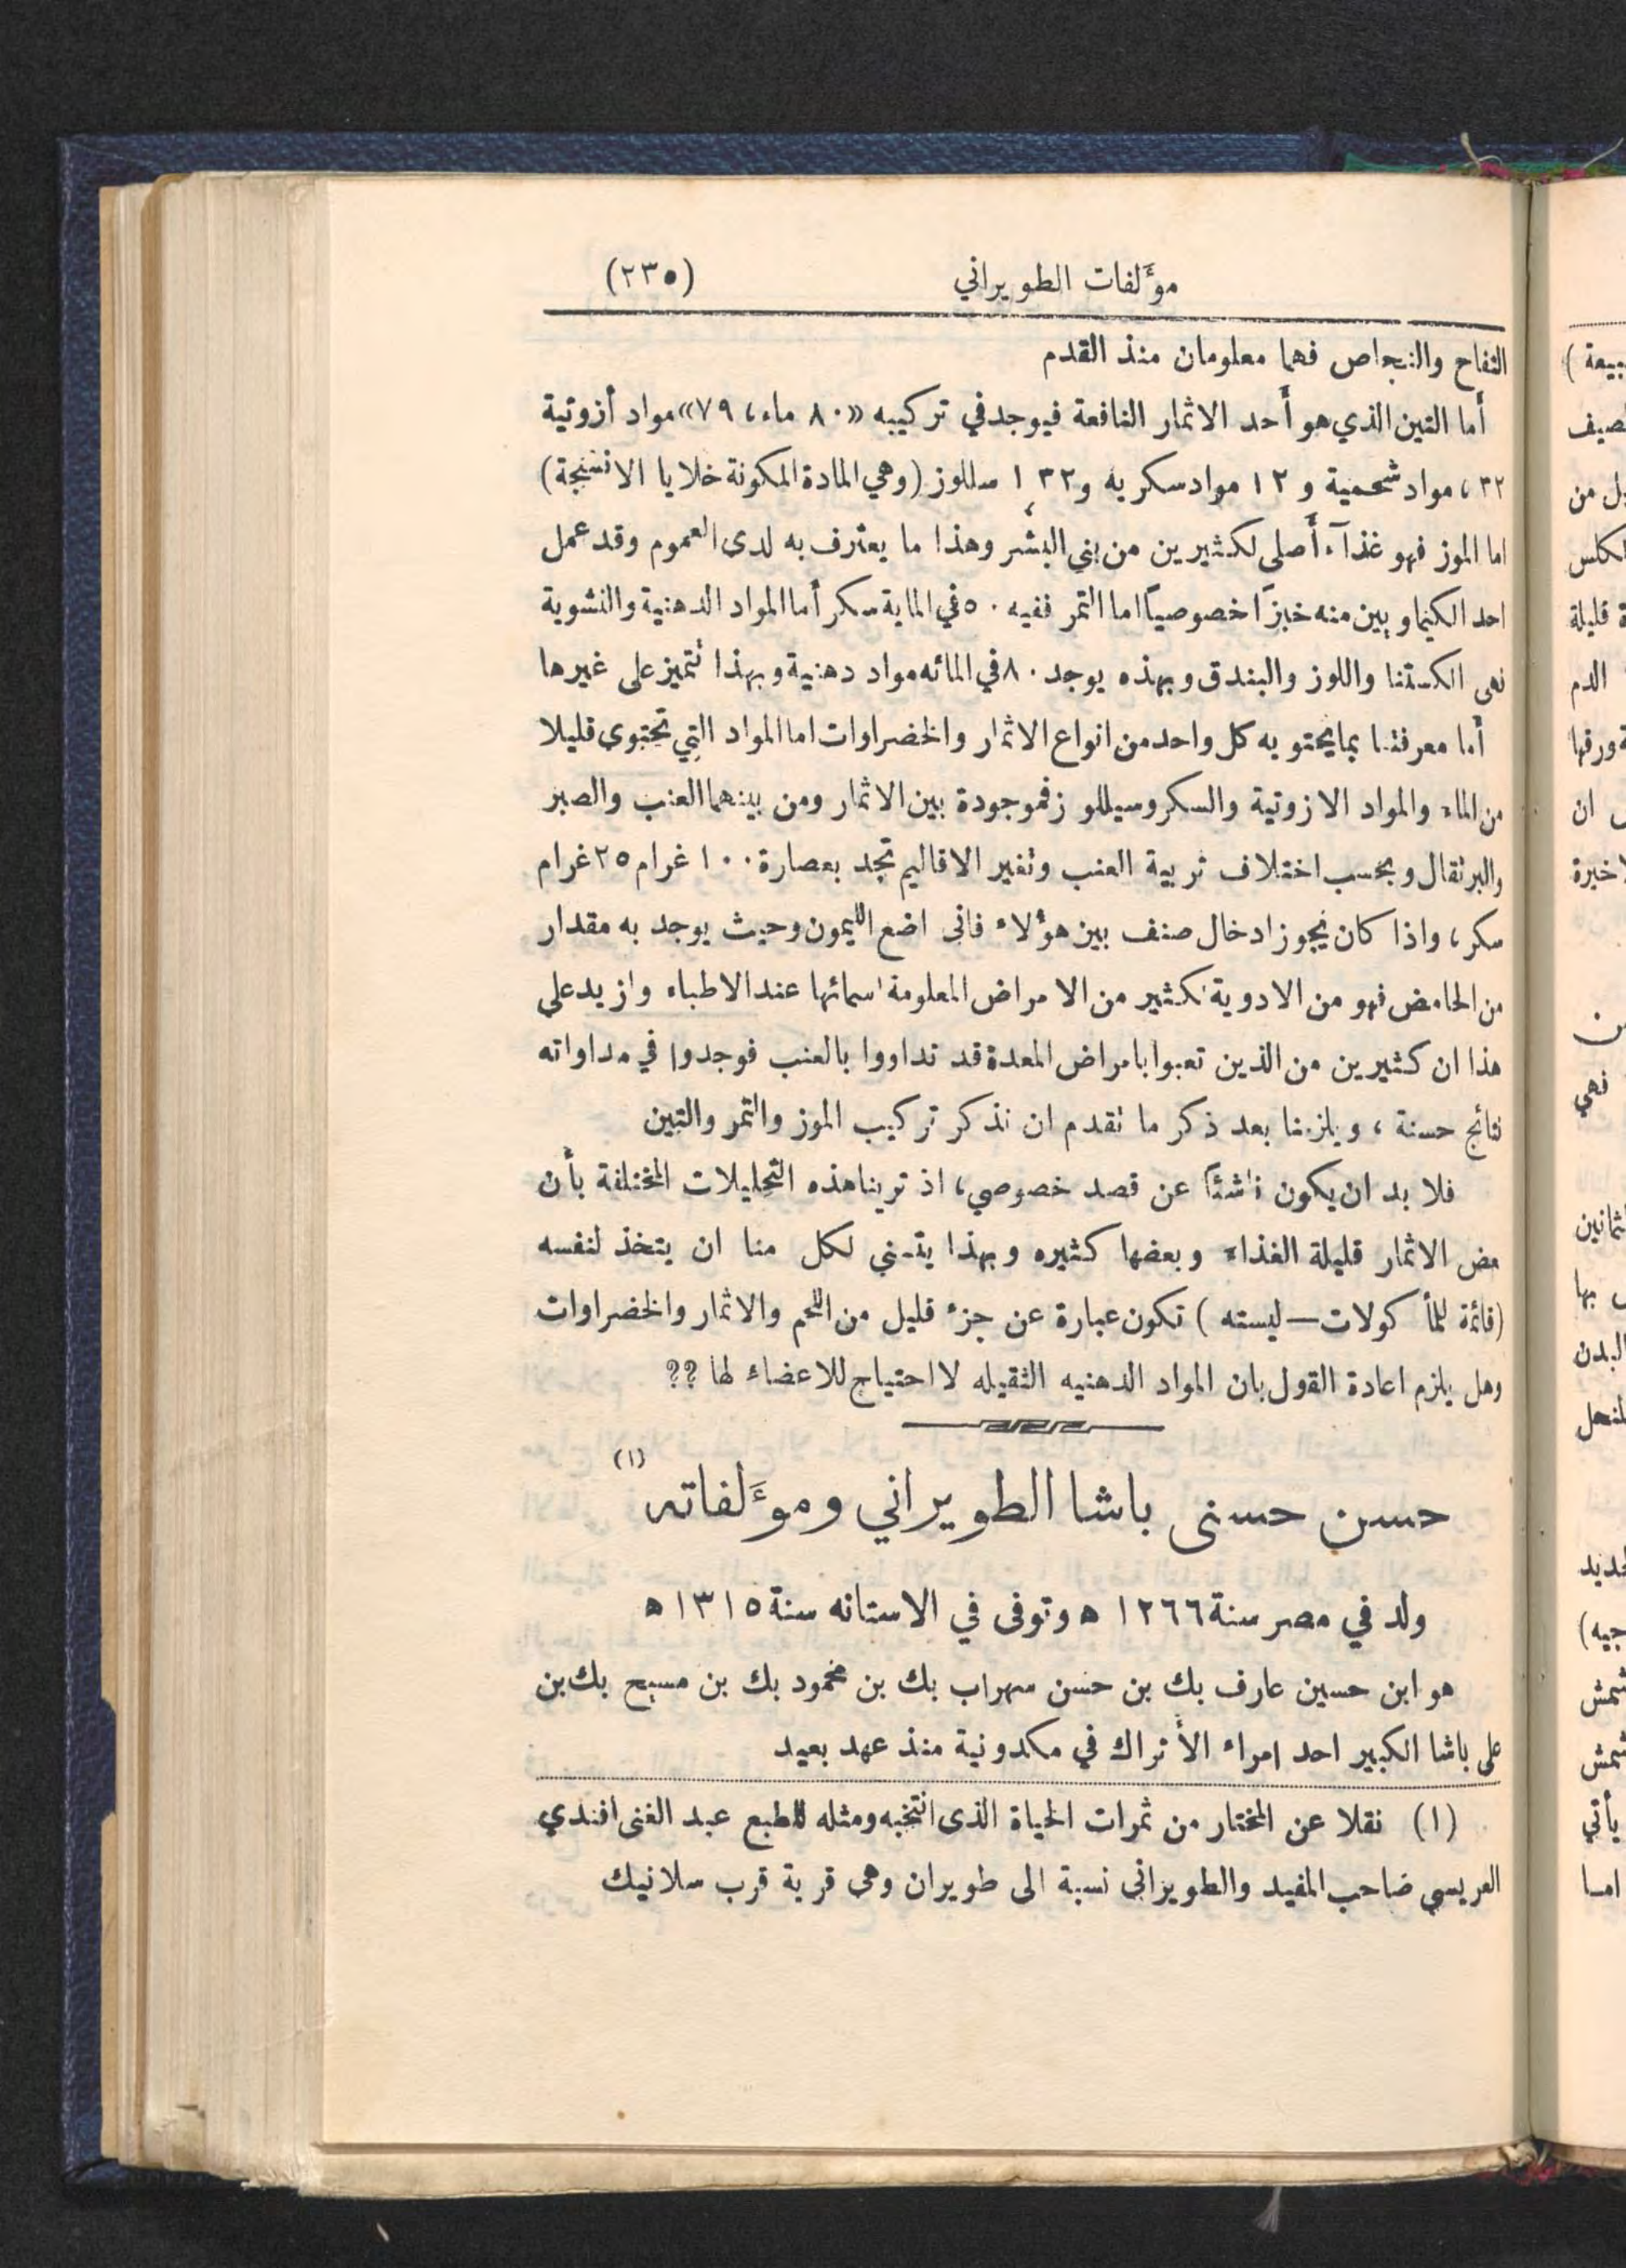 مؤلفات الطويراني (٢٣٥)
التفاح والنجاص فهما معلومان منذ القدم
أما التين الذي هو أحد الاثمار النافعة فيوجد في تركيبه «٨٠ ماء، ٧٩» مواد أزوتية
٣٢، مواد شحمية و ١٢ مواد سكريه و٣٢، ١ سللوز (وهي المادة المكونة خلايا الانسنجة)
اما الموز فهو غذآء أصلى لكثيرين من بني البشر وهذا ما يعترف به لدى العموم وقد عمل
احد الكيماويين منه خبزاً خصوصياً اما التمر ففيه ٥٠ في الماية سكر أما المواد الدهنية والنشوية
نهى الكستنا واللوز والبندق وبهذه يوجد ٨٠ في المائه مواد دهنية وبهذا تتميز على غيرها
أما معرفتنا بما يحتويه كل واحد من انواع الاثمار والخضراوات اما المواد التي تحتوى قليلا
من الماء والمواد الازوتية والسكر وسيللوز فموجودة بين الاثمار ومن بينهما العنب والصبر
والبرتقال وبحسب اختلاف تربية العنب وتغير الاقاليم تجد بعصارة ١٠٠ غرام ٢٥ غرام
سكر، واذا كان يجوز ادخال صنف بين هؤلاء فانى اضع الليمون وحيث يوجد به مقدار
من الحامض فهو من الادوية لكثير من الامراض المعلومة اسمائها عند الاطباء وازيد على
هذا ان كثيرين من الذين تعبوا بامراض المعدة قد تداووا بالعنب فوجدوا في مداواته
نتائج حسنة، ويلزمنا بعد ذكر ما تقدم ان نذكر تركيب الموز والتمر والتين
فلا بد ان يكون ناشئاً عن قصد خصوصي، اذ ترينا هذه التحليلات المختلفة بأن
بعض الاثمار قليلة الغذاء وبعضها كثيره وبهذا يتسنى لكل منا ان يتخذ لنفسه
(قائمة للمأكولات—ليسته) تكون عبارة عن جزء قليل من اللحم والاثمار والخضراوات
وهل يلزم اعادة القول بان المواد الدهنيه الثقيله لا احتياج للاعضاء لها ؟؟
حسن حسنى باشا الطويراني ومؤلفاته (١)
ولد في مصر سنة ١٢٦٦ ه وتوفى في الاستانه سنة ١٣١٥ ه
هو ابن حسين عارف بك بن حسن سهراب بك بن محمود بك بن مسيح بك بن
على باشا الكبير احد امراء الأتراك في مكدونية منذ عهد بعيد
(١) نقلا عن المختار من ثمرات الحياة الذى انتخبه ومثله للطبع عبد الغنى افندي
العريسي صاحب المفيد والطويرانى نسبة الى طويران وهى قرية قرب سلانيك